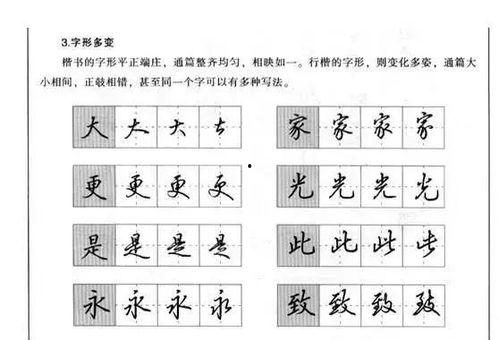 3.字形多变
楷书的字形平正端庄，通篇整齐均匀，相映如一。行楷的字形，则变化多姿，通篇大
小相间，正敧相错，甚至同一个字可以有多种写法。
大 大 大 大 家 家 家 家
更 更 更 更 光 光 光 光
是 是 是 是 此 此 此 此
永 永 永 永 致 致 致 致